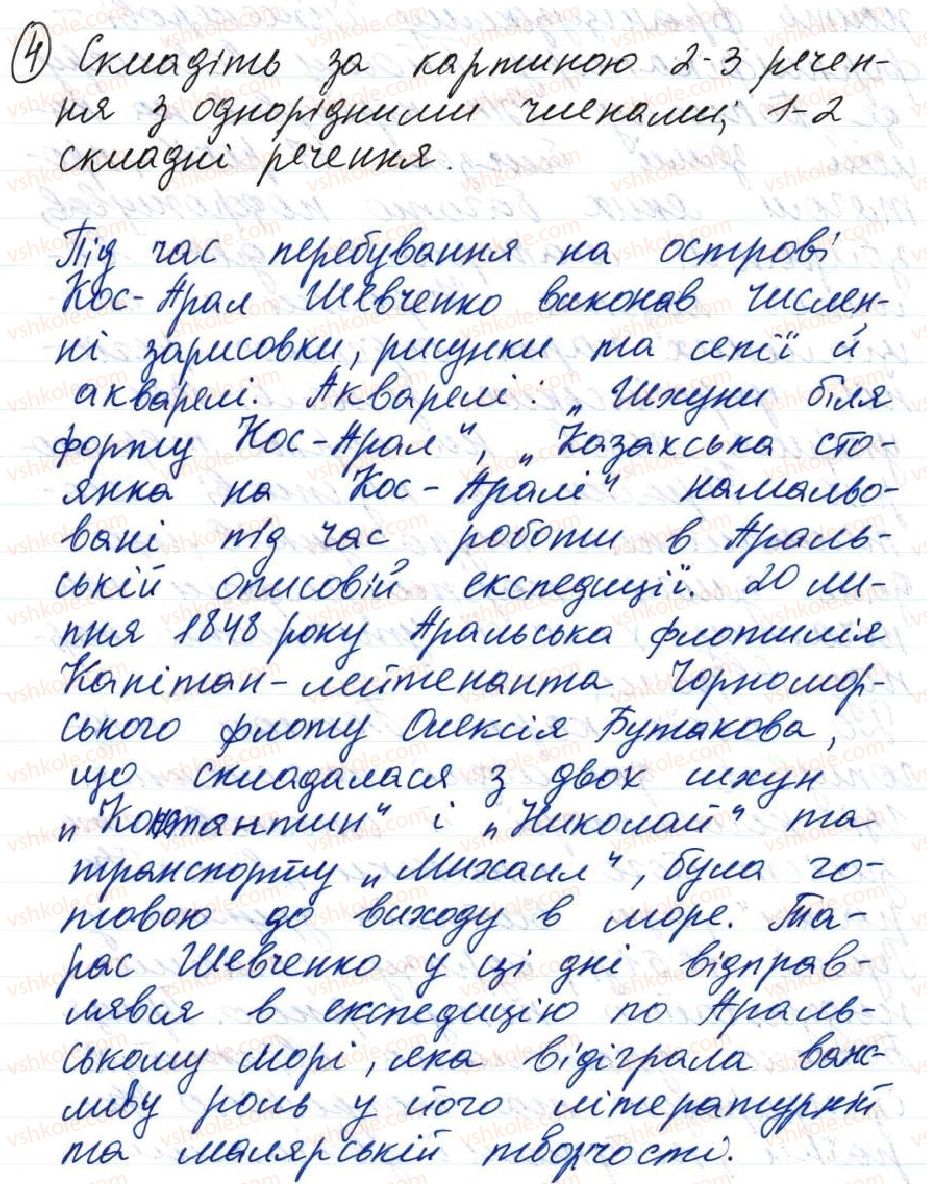 4 Складіть за картиною 2-3 речен-
ня з однорідними членами, 1-2
складні речення.
Під час перебування на острові
Кос-Арал Шевченко виконав числен-
ні зарисовки, рисунки та сепії й
акварелі. Акварелі: „Шхуни біля
форту Кос-Арал", „Казахська сто-
янка на Кос-Аралі" намальо-
вані під час роботи в Араль-
ській описовій експедиції. 20 ли-
пня 1848 року Аральська флотилія
Капітан-лейтенанта Чорномор-
ського флоту Олексія Бутакова,
що складалася з двох шхун
„Константин" і „Николай" та
транспорту „Михаил", була го-
товою до виходу в море. Та-
рас Шевченко у ці дні відправ-
лявся в експедицію по Араль-
ському морі, яка відіграла важ-
ливу роль у його літературній
та малярській творчості.